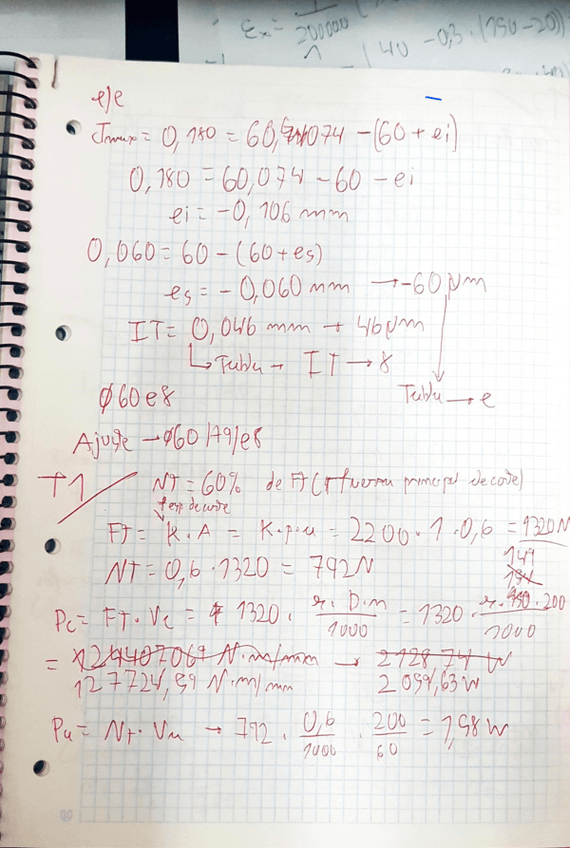 εx = 1/200000
(40 - 0,3 · (150 - 20))
eje
Jmax = 0,180 = 60,074 - (60 + ei)
0,180 = 60,074 - 60 - ei
ei = -0,106 mm
0,060 = 60 - (60 + es)
es = -0,060 mm → -60 μm
IT = 0,046 mm → 46 μm
↳ Tabla → IT → 8
Tabla → e
Ø60e8
Ajuste → Ø60 H9/e8
T1
NT = 60% de FT (FT fuerza principal de corte)
↑ esp de corte
FT = K · A = K · p · a = 2200 · 1 · 0,6 = 1320 N
NT = 0,6 · 1320 = 792 N
149
Pc = FT · Vc = 1320 · π · D · n/1000 = 1320 · π · 150 · 200/1000
= N · m/min → 2128,74 W
127724,59 N · m/min 2094,63 W
Pa = NT · Va → 792 · 0,6/1000 · 200/60 = 1,58 W